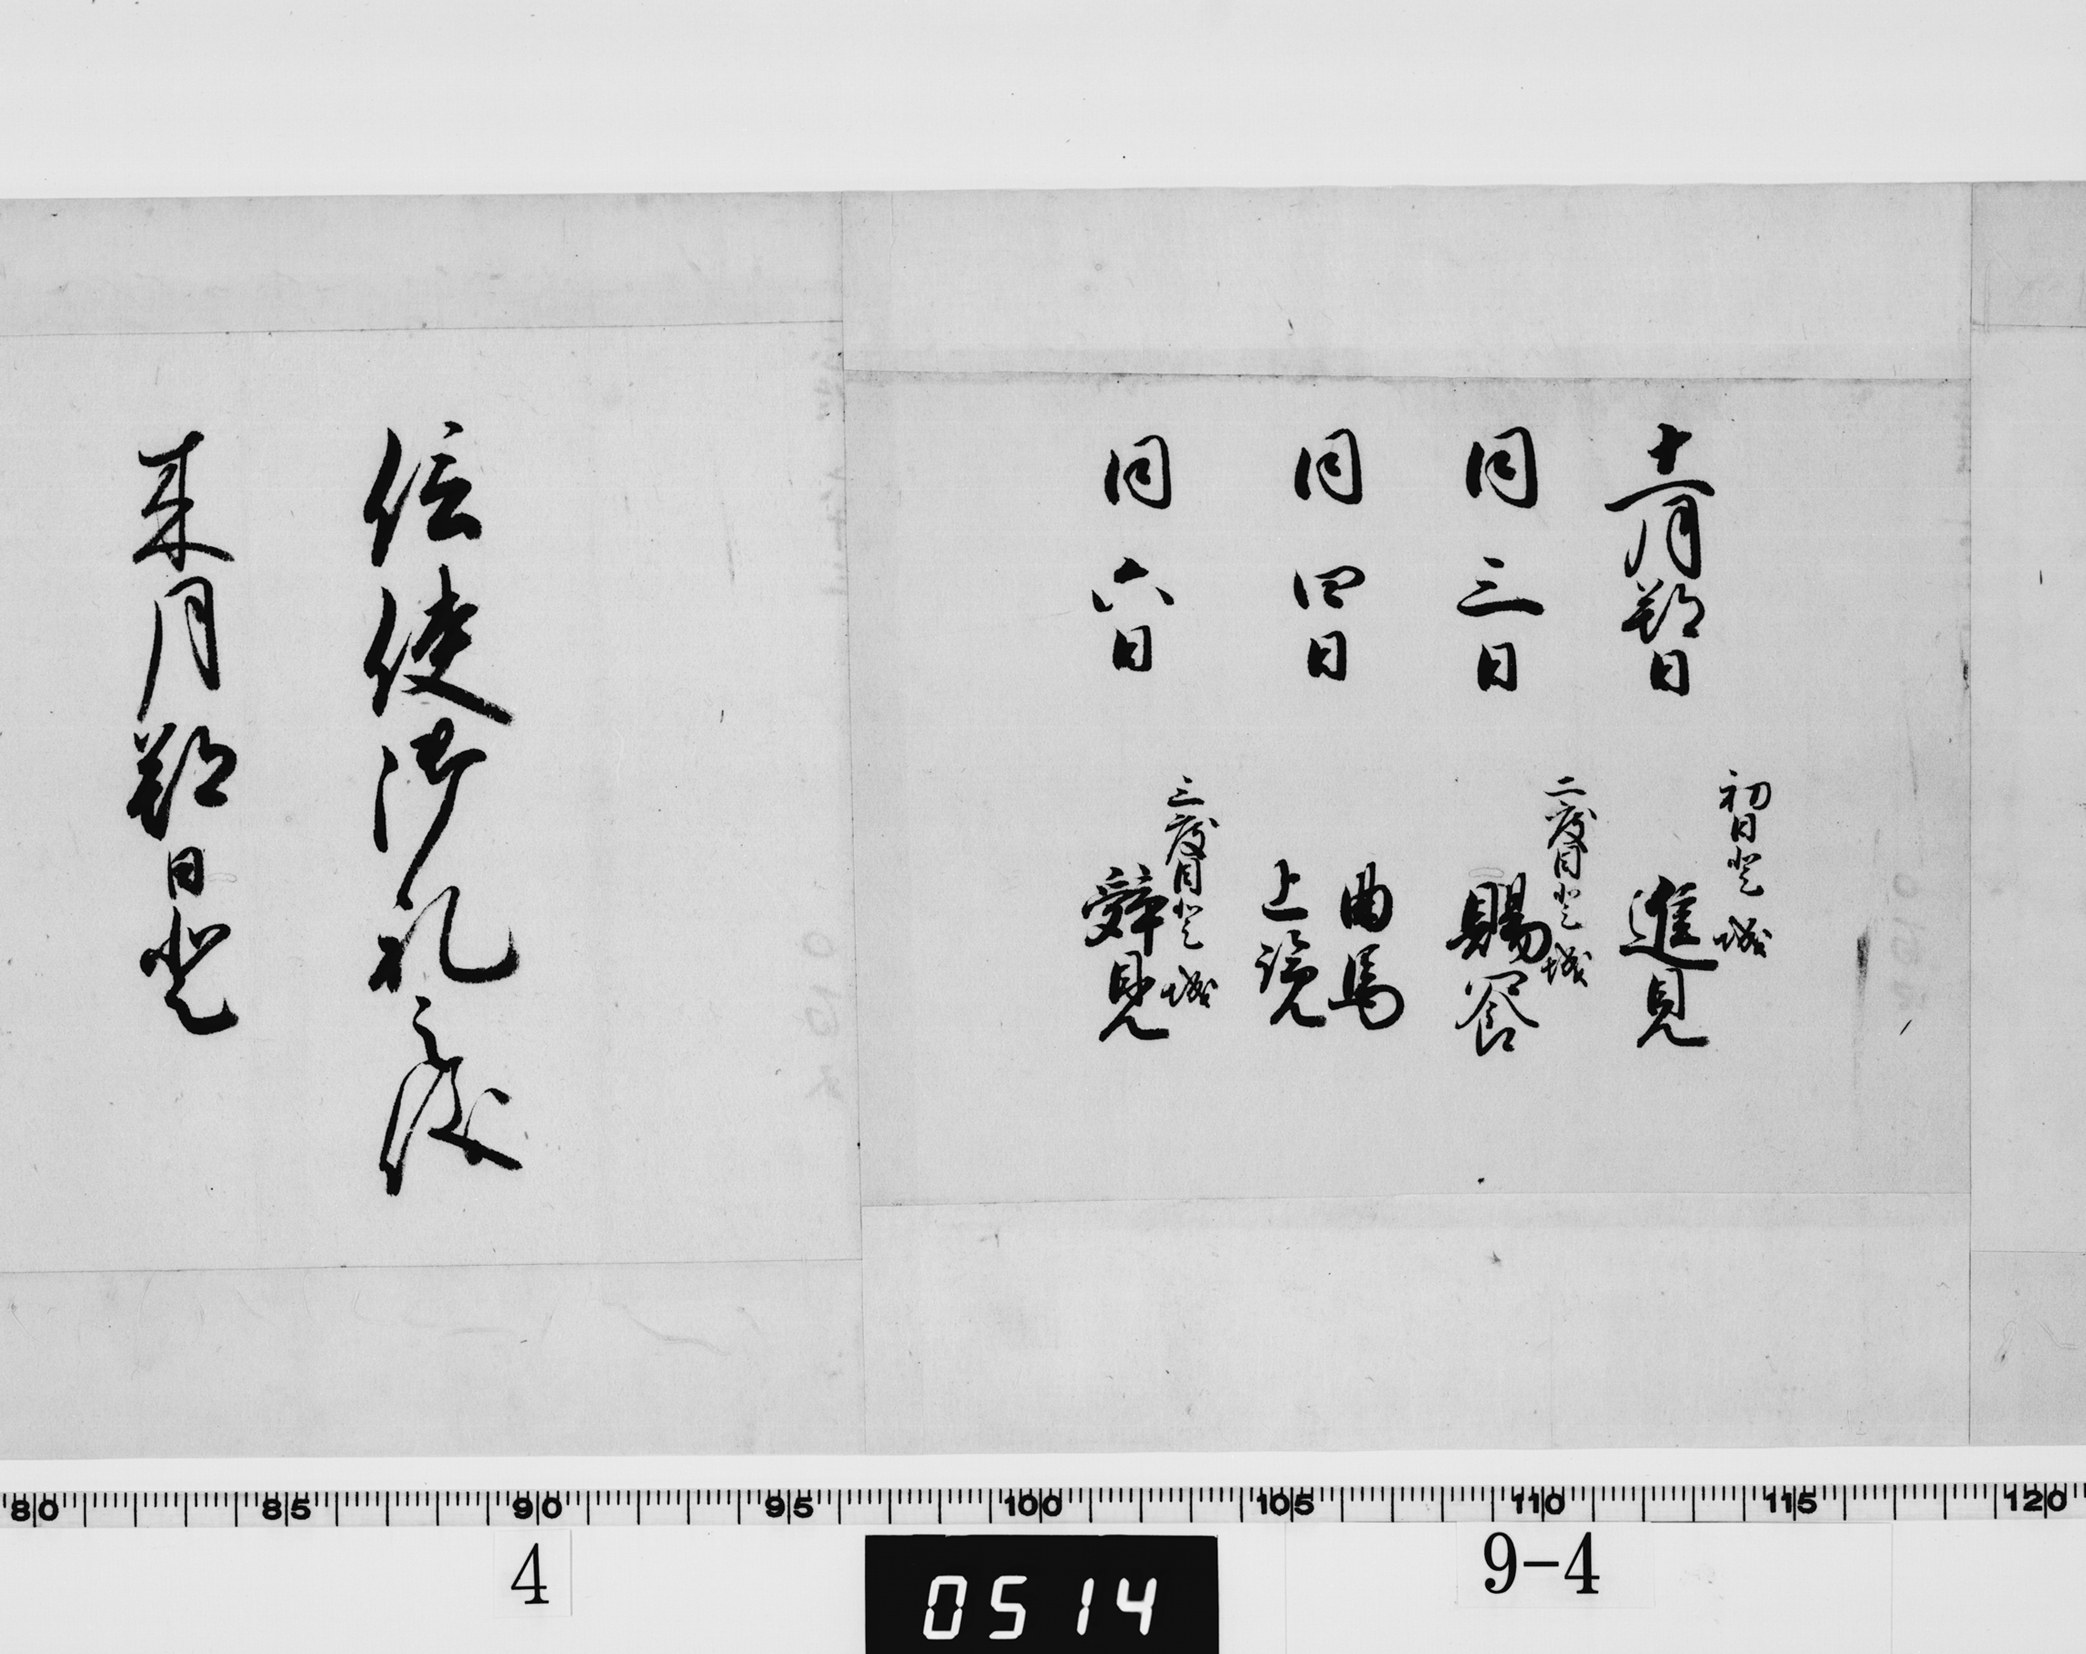 初日登城
十一月朔日 進見
二度目登城
同三日 賜饗
同四日 曲馬
上覧
三度目登城
同六日 辞見
信使御礼之儀
来月朔日登
80 85 90 95 100 105 110 115 120
4
0514
9-4